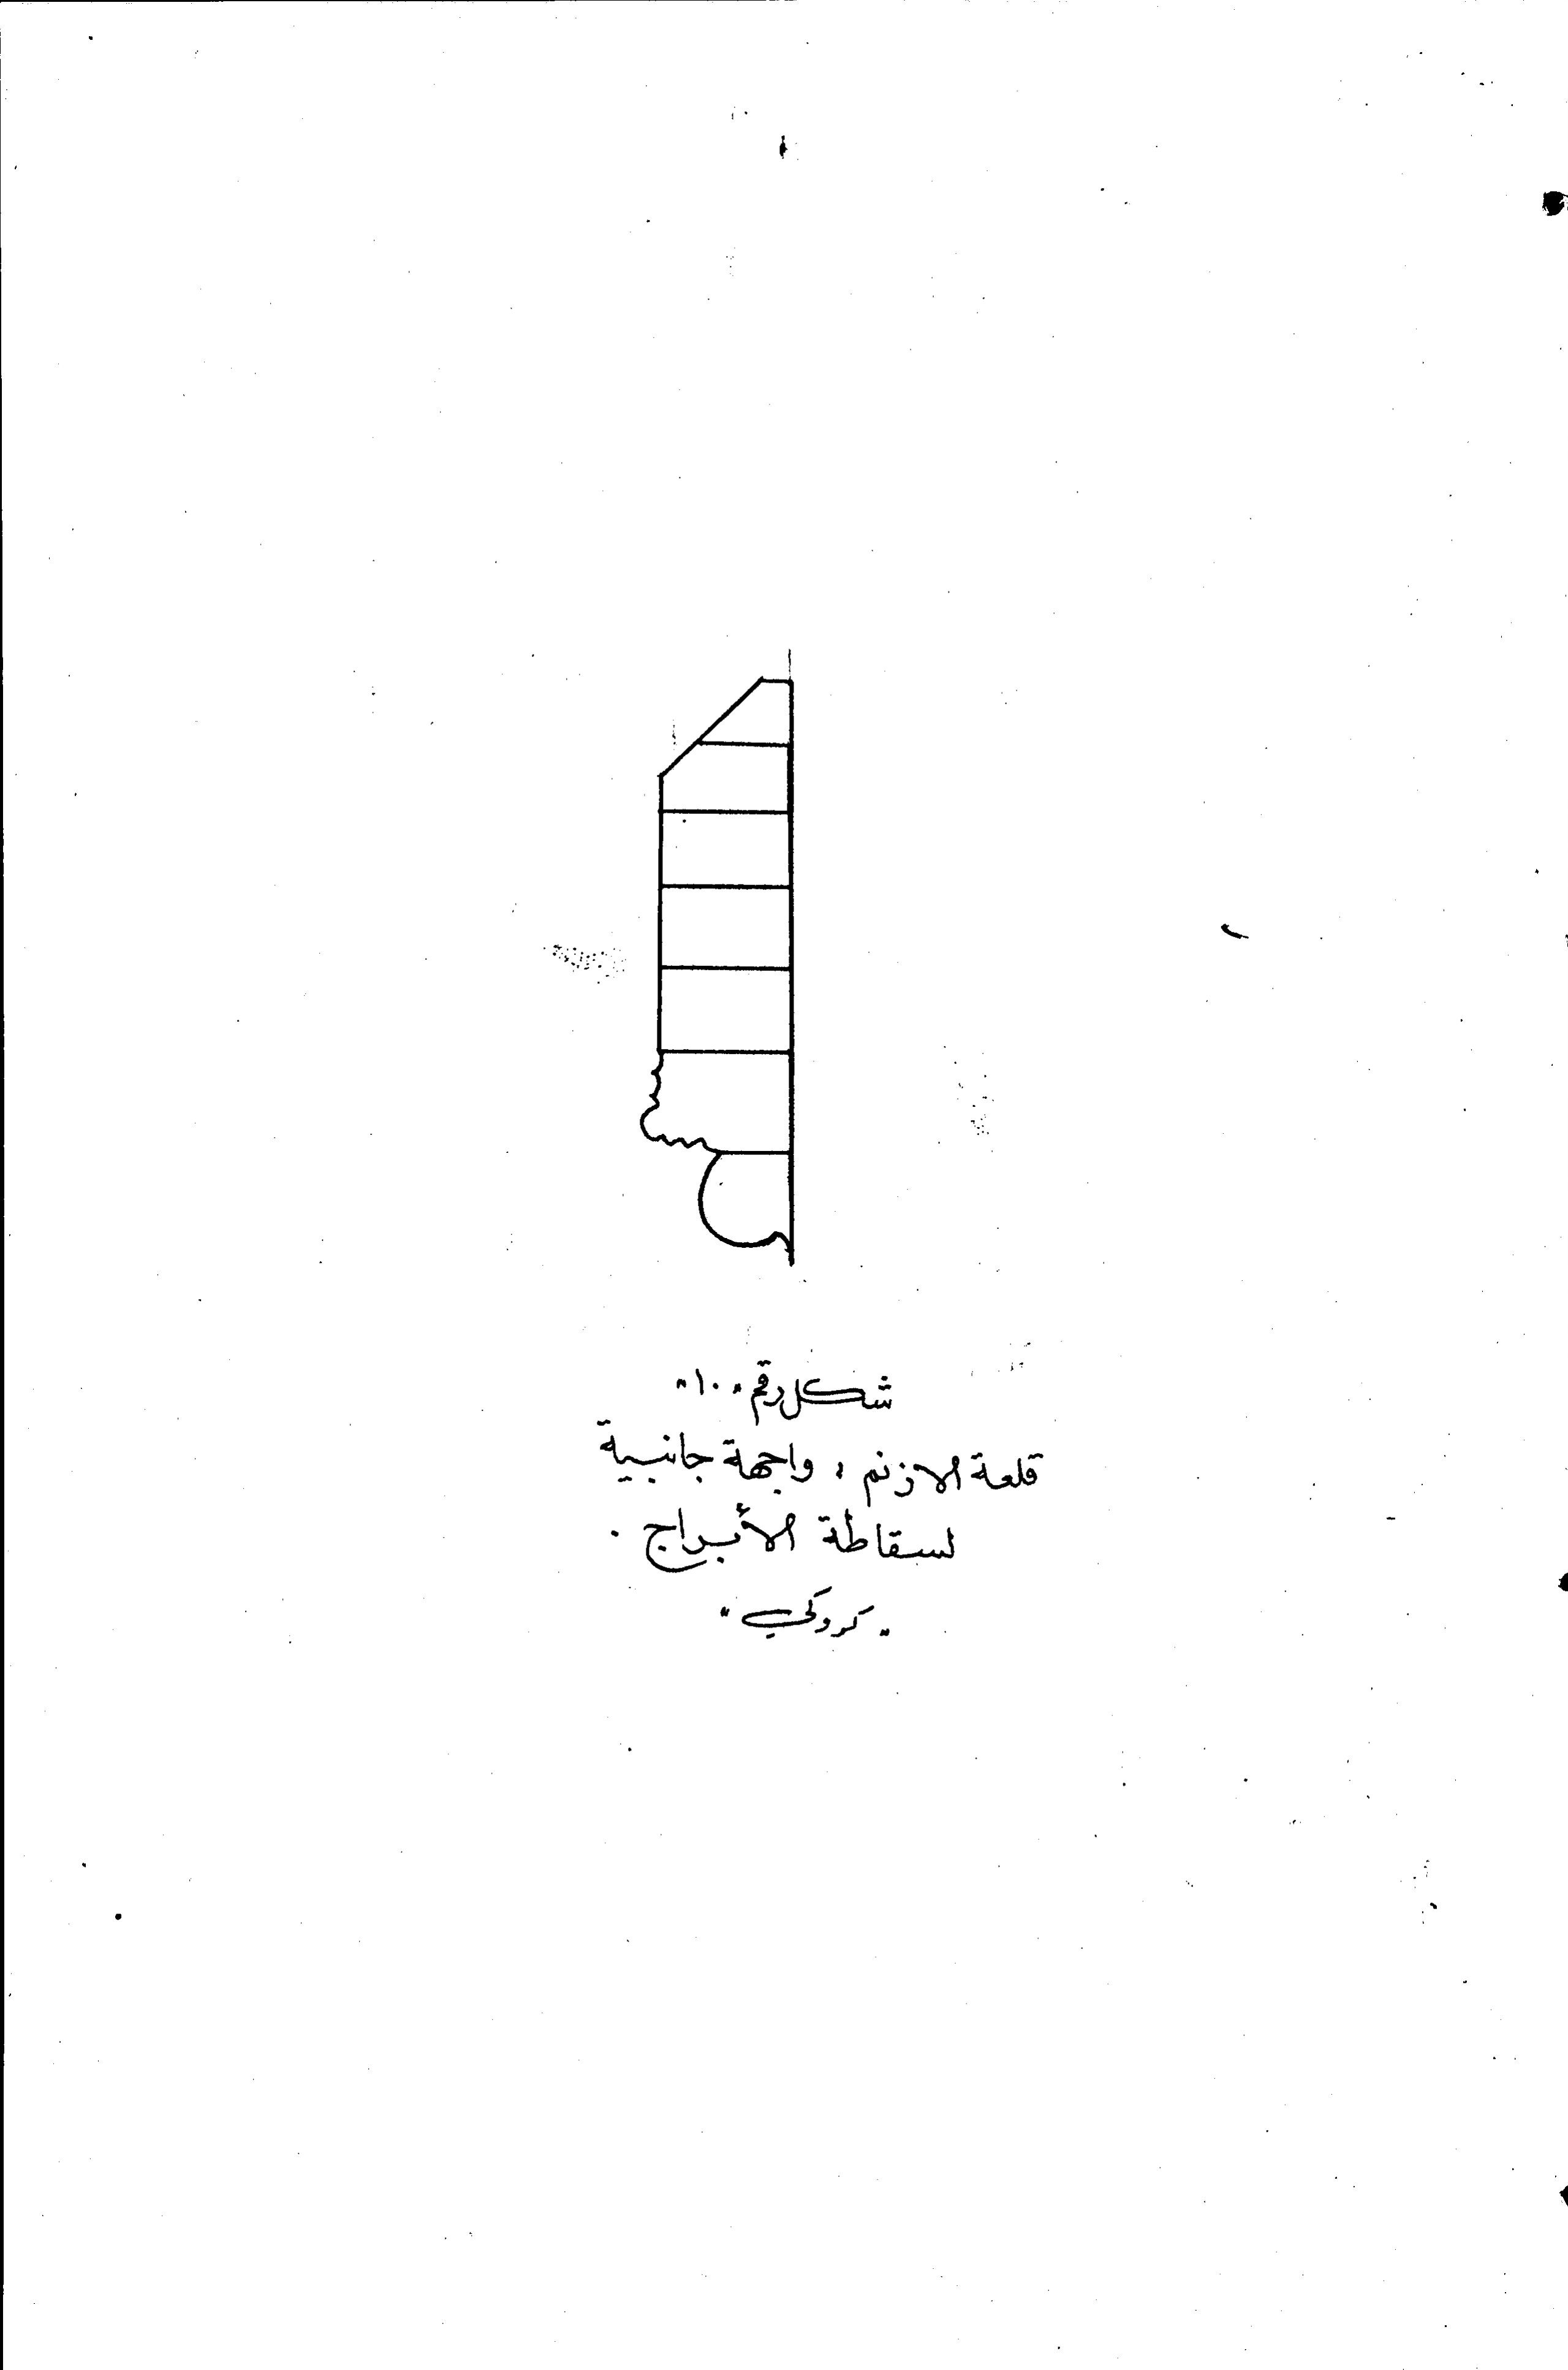 شكل رقم "١٠"
قلعة الازنم ، واجهة جانبية
لسقاطة الأبراج .
"كروكي"